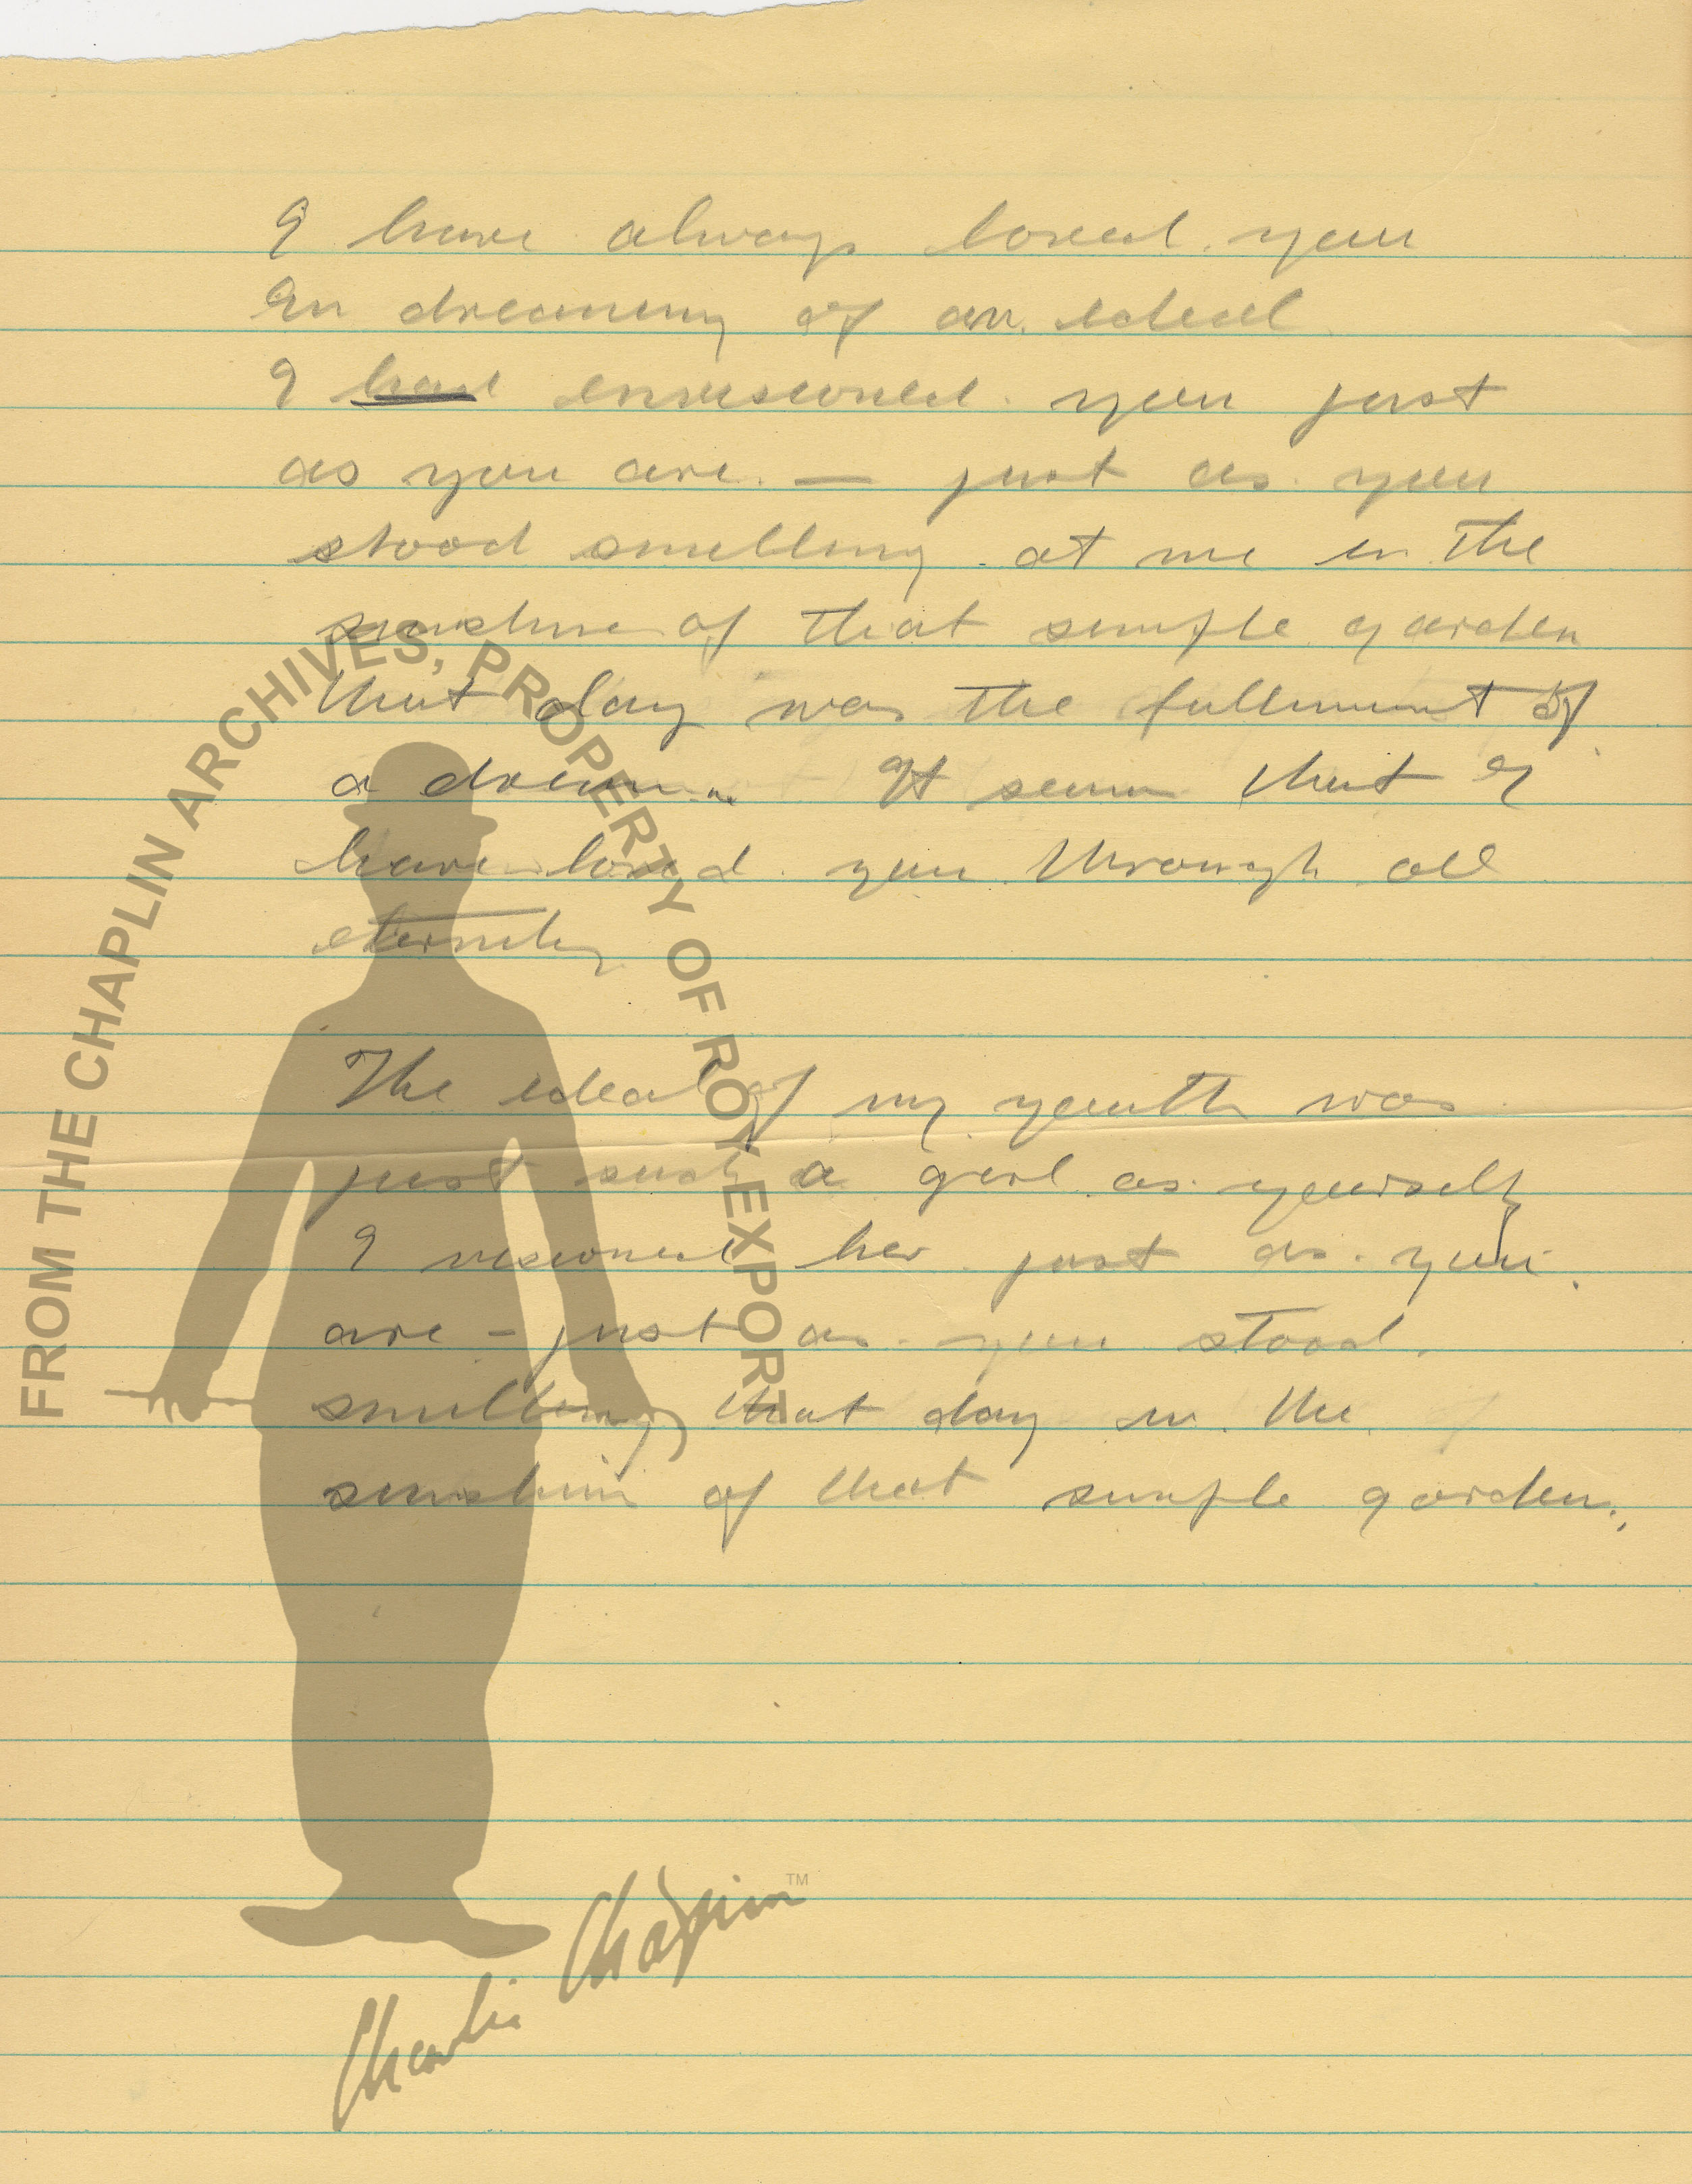 I have always loved you
In dreaming of an ideal
I had envisioned you just
as you are. — just as you
stood smilling at me in the
sunshine of that simple garden
that day was the fullment of
a dream. It seem that I
have loved you through all
eternity
The ideal of my youth was
just such a girl as yourself
I visioned her just as you
are - just as you stood
smilling that day in the
sunshine of that simple garden.
FROM THE CHAPLIN ARCHIVES, PROPERTY OF ROY EXPORT
Charlie Chaplin™